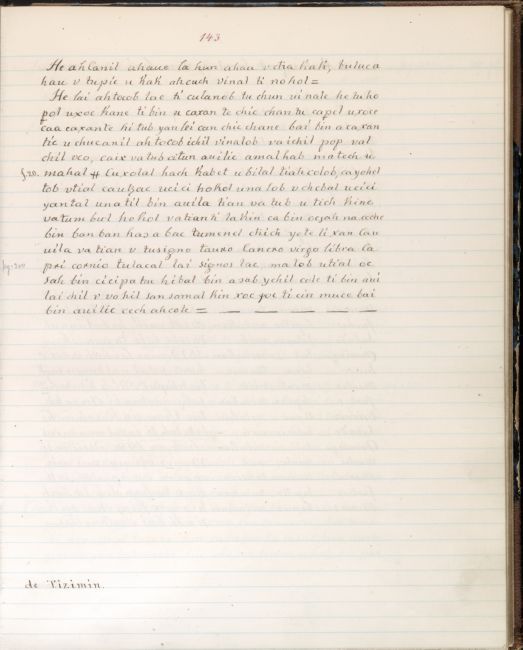 143
He ahCanil ahaue la hun ahau v cħa kak, buluca
hau v tupic u kak ahcuch vinal ti nohol =
He lai ahtocob lae ti culanob tu chun vinale he tu ho
pol uxoc kane ti bin u caxan te chic chan tu capil uxoce
caa caxante hi tub yanloi can chic chane bai bin a caxan
tic u chucanil ahtocob ichil vinalob va ichil pop val
chil veo, caix va tub cutun auilic amal hab matech u
§ 20. mahal # Cuxolal hach kabet u bilal tiahcolob, ca yohel
tob vtial cautzac ucici hokol una lob v chebal ucici
yantal unatil bin auila tian va tub u tech kine
vatum bul hokol vatianti lakin ca bin ocsah nacche
bin ban ban has a bac tumenel chich yete ti xan Cau
uila va tian v tusigno tauro Cancro virgo libra Ca
pri cornio tulacal lai signos lae, ma lob utial oc
sah bin cicipa tu hibal bin a sab ychil cole ti bin aui
lai chil v vohil sansamal kin xoc ti cin muce bai
bin auilic cech ahcole = — — — — —
de Tizimin.